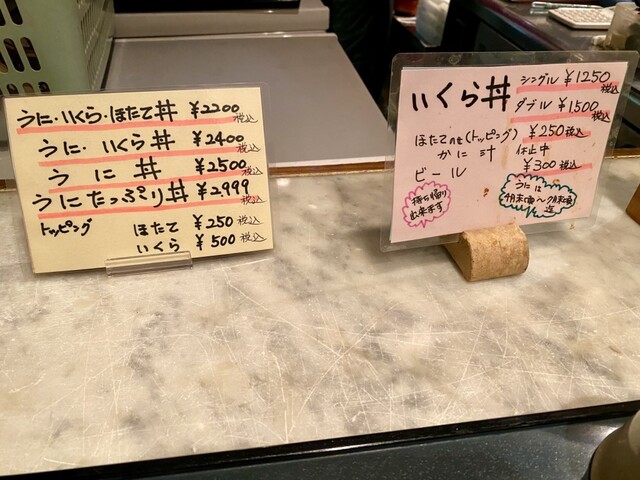 うに・いくら・ほたて丼 ¥2200 税込
うに・いくら丼 ¥2400 税込
うに丼 ¥2500 税込
うにたっぷり丼 ¥2,999 税込
トッピング ほたて ¥250 税込
いくら ¥500 税込
いくら丼 シングル ¥1250 税込
ダブル ¥1500 税込
ほたてのせ(トッピング) ¥250 税込
かに汁 休止中
ビール ¥300 税込
持ち帰り
出来ます
うには
月末頃〜 月末頃
迄